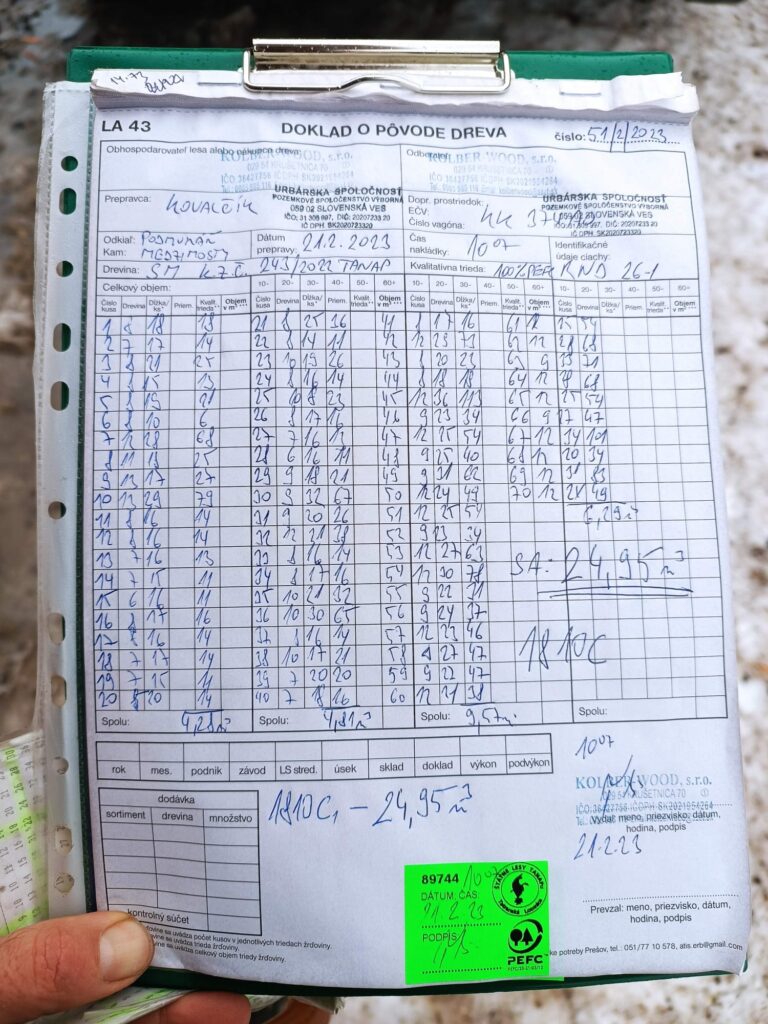 LA 43 DOKLAD O PÔVODE DREVA číslo: 51/2/2023
Obhospodarovateľ lesa alebo nákupca dreva:
KOLBER-WOOD, s.r.o.
Odberateľ:
KOLBER WOOD, s.r.o.
Prepravca: KOVALČIK
URBÁRSKA SPOLOČNOSŤ
POZEMKOVÉ SPOLOČENSTVO VÝBORNÁ
059 02 SLOVENSKÁ VES
IČ DPH: SK2020723320
Dopr. prostriedok:
EČV:
Číslo vagóna:
URBÁRSKA SPOLOČNOSŤ
POZEMKOVÉ SPOLOČENSTVO VÝBORNÁ
059 02 SLOVENSKÁ VES
IČ DPH: SK2020723320
Odkiaľ:
Kam: MEDZIMOSTY
Dátum prepravy: 21.2.2023
Čas nakládky: 10 07
Identifikačné údaje ciachy:
Drevina: SM 243/2022 TANAP
Kvalitatívna trieda: 100% PEFC RND 26-1
Celkový objem: 10- 20- 30- 40- 50- 60+ 10- 20- 30- 40- 50- 60+ 10- 20- 30- 40- 50- 60+
Číslo kusa Drevina Dĺžka/ks* Priem. Kvalit. trieda** Objem v m³ ***
1 8 18 18
2 7 17 14
3 8 21 25
4 8 15 13
5 8 19 21
6 8 10 6
7 12 28 68
8 11 19 25
9 13 17 27
10 13 29 79
11 8 16 14
12 8 16 14
13 7 16 13
14 7 15 11
15 6 16 11
16 8 17 16
17 8 16 14
18 7 17 14
19 7 15 11
20 8 20 14
Spolu: 4,28 m³
21 8 25 36
22 8 14 11
23 10 19 26
24 8 16 14
25 10 8 23
26 8 17 16
27 7 16 13
28 6 16 11
29 9 18 21
30 9 32 67
31 9 20 26
32 12 21 38
33 8 16 14
34 8 17 16
35 10 21 32
36 10 30 65
37 8 16 14
38 10 17 21
39 7 20 20
40 7 18 16
Spolu: 4,81 m³
41 8 17 16
42 12 29 73
43 8 20 23
44 8 18 18
45 12 36 113
46 9 23 34
47 12 25 54
48 9 25 40
49 9 31 62
50 12 24 49
51 12 25 54
52 9 23 34
53 12 27 63
54 12 30 78
55 9 22 31
56 9 24 37
57 12 23 46
58 27 47
59 9 22 47
60 12 21 38
Spolu: 9,57 m³
61 12 25 54
62 12 28 68
63 9 33 71
64 12 28 68
65 12 25 54
66 9 27 47
67 12 34 101
68 12 20 34
69 12 31 83
70 12 24 49
6,29 m³
SA: 24,95 m³
1810C
Spolu:
rok mes. podnik závod LS stred. úsek sklad doklad výkon podvýkon
dodávka
sortiment drevina množstvo
kontrolný súčet
1810C1 – 24,95 m³
10 07
KOLBER-WOOD, s.r.o.
029 54 KRUŠETNICA 70
IČO:36427756 IČDPH SK2021954264
Vydal: meno, priezvisko, dátum,
hodina, podpis
21.2.23
Prevzal: meno, priezvisko, dátum,
hodina, podpis
89744 10 07
DÁTUM: ČAS:
21.2.23
PODPIS
ŠTÁTNE LESY TANAPU
Tatranská Lomnica
PEFC
uvádza počet kusov v jednotlivých triedach žrďoviny.
uvádza trieda žrďoviny.
uvádza celkový objem triedy žrďoviny.
potreby Prešov, tel.: 051/77 10 578, atis.erb@gmail.com